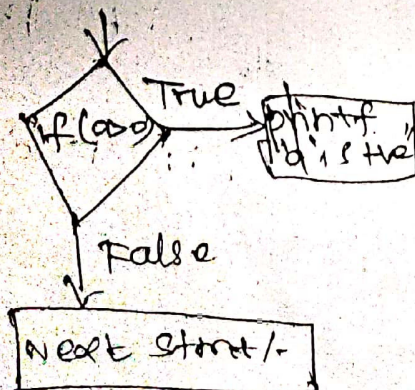 if (a>0)
True
printf
'a' is +ve
False
Next stmt/-